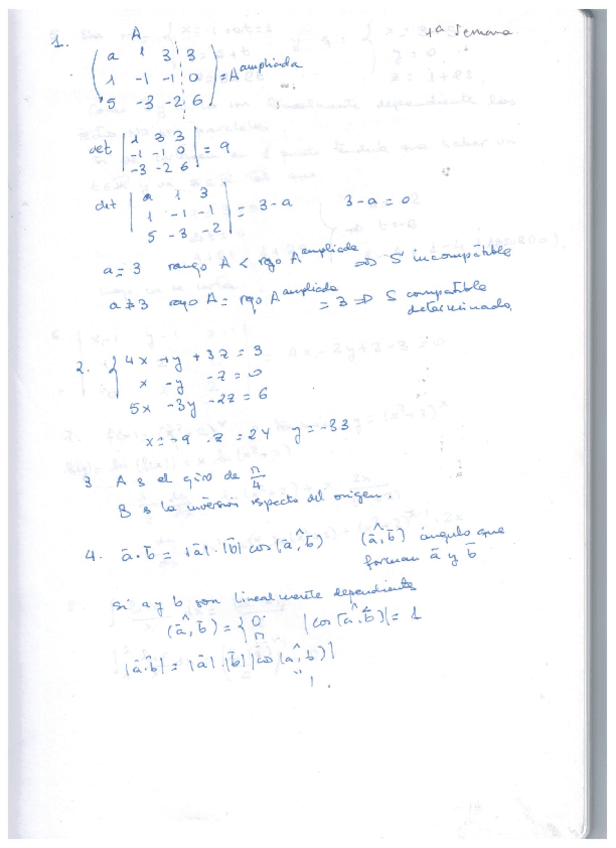 1ª Semana
1. A
( a 1 3 3
1 -1 -1 0
5 -3 -2 6 ) = A ampliada
det | 1 3 3
-1 -1 0
-3 -2 6 | = 9
det | a 1 3
1 -1 -1
5 -3 -2 | = 3-a 3-a = 0
a = 3 rango A < rgo A ampliada ⇒ S incompatible
a ≠ 3 rgo A = rgo A ampliada = 3 ⇒ S compatible
determinado,
2. { 4x + y + 3z = 3
x - y - z = 0
5x - 3y - 2z = 6
x = -9 z = 24 y = -33
3 A es el giro de π/4
B es la inversión respecto del origen.
4. ā·b̄ = |ā|·|b̄| cos(ā,b̄) (ā,b̄) ángulo que
forman ā y b̄
Si a y b son linealmente dependientes
(ā,b̄) = { 0
π |cos(ā,b̄)| = 1
|ā·b̄| = |ā|·|b̄| |cos(ā,b̄)|
" 1.